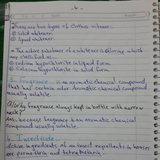 There are two types of Clothes whitener.
① Solid whitener
② liquid whitener.
The active substance of whitener is chlorine which
are classified in:
① Sodium hypochlorite in liquid form
② Calcium hypochlorite in solid form
is an aromatic chemical compound
that has certain odor. Aromatic chemical compound
usually volatile.
Q/ Why fragrance always kept in bottle with narrow
Ans: because fragrance is an aromatic chemical
compound usually volatile.
Insecticide
Active ingredients of an insect ingredients in barriers
are permethrin and tetramethrin